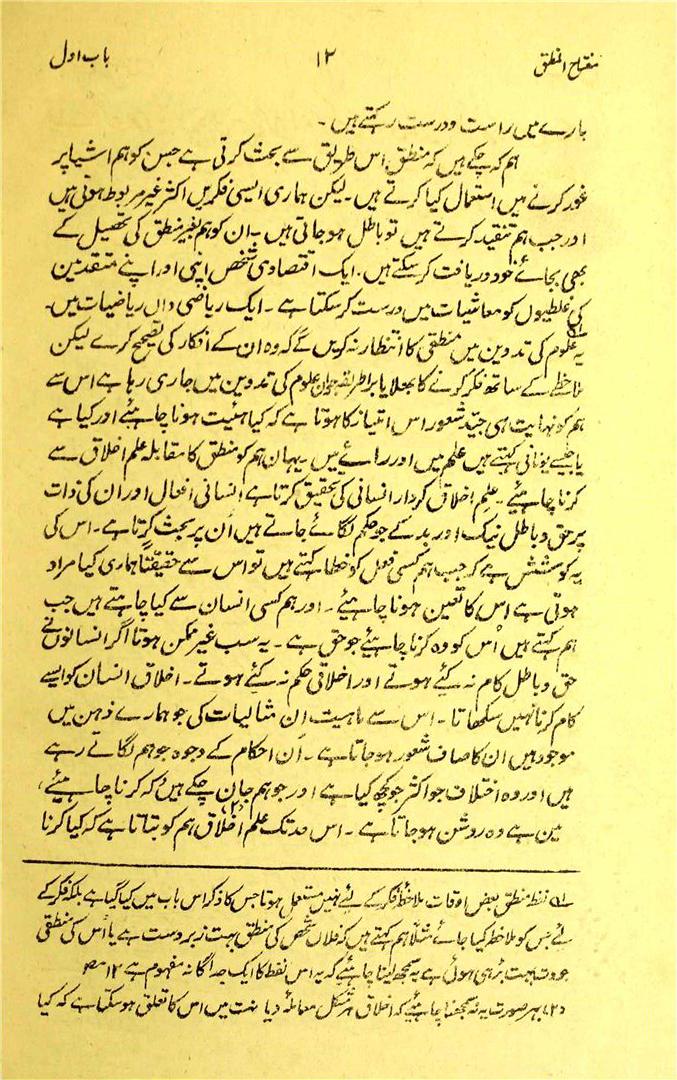 مفتاح المنطق ۱۲ باب اول
بارے میں راست و درست رکھتے ہیں ۔
ہم کہ چکے ہیں کہ منطق اس طریق سے بحث کرتی ہے جس کو ہم اشیا پر
غور کرنے میں استعمال کیا کرتے ہیں ۔ لیکن ہماری ایسی فکریں اکثر غیر مربوط ہوتی ہیں
اور جب ہم تنقید کرتے ہیں تو باطل ہو جاتی ہیں ۔ ان کو ہم بغیر منطق کی تحصیل کے
بھی بجائے خود دریافت کر سکتے ہیں ۔ ایک اقتصادی شخص اپنی اور اپنے متقدمین
کی غلطیوں کو معاشیات میں درست کر سکتا ہے ۔ ایک ریاضی داں ریاضیات میں ۔
یہ علوم کی تدوین میں منطقی کا انتظار نہ کریں گے کہ وہ ان کے افکار کی تصحیح کرے لیکن
ملاحظے کے ساتھ فکر کرنے کا بھلا یا برا طریقہ جو ان علوم کی تدوین میں جاری رہا ہے اس سے
ہم کو نہایت ہی جیّد شعور اس امتیاز کا ہوتا ہے کہ کیا ہئیت ہونا چاہئیے اور کیا ہے
یا جیسے یونانی کہتے ہیں علم میں اور رائے میں ۔ یہان ہم کو منطق کا مقابلہ علم اخلاق سے
کرنا چاہئیے ۔ علم اخلاق کردار انسانی کی تحقیق کرتا ہے انسانی افعال اور ان کی ذات
پر حق و باطل نیک اور بد سے جو حکم لگائے جاتے ہیں اُن پر بحث کرتا ہے ۔ اس کی
یہ کوشش ہے کہ جب ہم کسی فعل کو خطا کہتے ہیں تو اس سے حقیقتاً ہماری کیا مراد
ہوتی ہے اس کا تعین ہونا چاہئیے ۔ اور ہم کسی انسان سے کیا چاہتے ہیں جب
ہم کہتے ہیں اُس کو وہ کرنا چاہئیے جو حق ہے ۔ یہ سب غیر ممکن ہوتا اگر انسانوں نے
حق و باطل کام نہ کئے ہوتے اور اخلاقی حکم نہ کئے ہوتے ۔ اخلاق انسان کو ایسے
کام کرنا نہیں سکھاتا ۔ اس سے ماہیت ان مثالیات کی جو ہمارے ذہن میں
موجود ہیں ان کا صاف شعور ہو جاتا ہے ۔ اُن احکام کے وجوہ جو ہم لگاتے رہے
ہیں اور وہ اختلاف جو اکثر جو کچھ کیا ہے اور جو ہم جان چکے ہیں کہ کرنا چاہئیے ،
مین ہے وہ روشن ہو جاتا ہے ۔ اس حد تک علم اخلاق ہم کو بتاتا ہے کہ کیا کرنا
لفظ منطق بعض اوقات ملاحظۂ فکر کے لئے نہیں مستعمل ہوتا جس کا ذکر اس باب میں کیا گیا ہے بلکہ فکر کے
لئے جس کو ملاحظہ کیا جائے مثلاً ہم کہتے ہیں کہ فلاں شخص کی منطق بہت زبردست ہے یا اُس کی منطقی
جودت بہت بڑہی ہوئی ہے یہ سمجھ لینا چاہئیے کہ یہ اس لفظ کا ایک جدا گانہ مفہوم ہے ۱۲
(۲) بہر صورت یہ نہ سمجھنا چاہئیے کہ اخلاق ہر مشکل معاملۂ دیانت میں اس کا تعلق ہو سکتا ہے کہ کیا